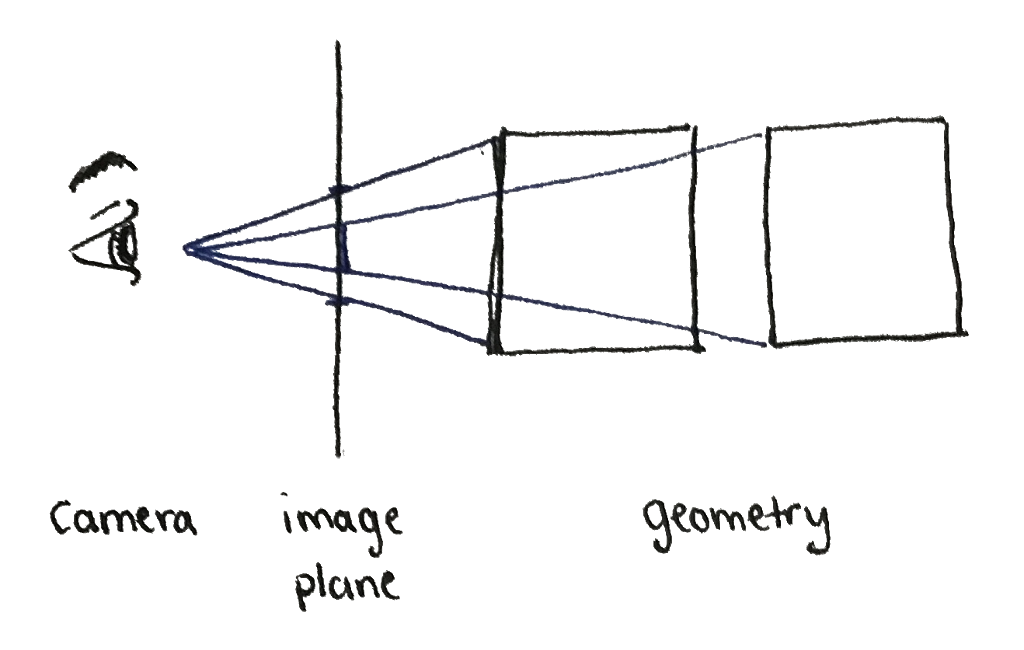 camera
image
plane
geometry